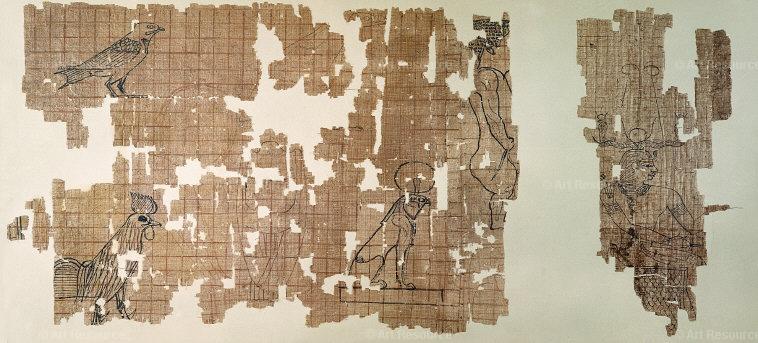 © Art Resource
© Art Resource
© Art Resource
© Art Resource
© Art Resource
© Art Resource
© Art Resource